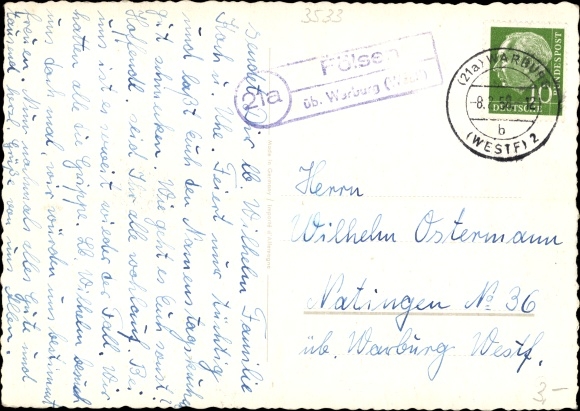 3533
Pölsen
üb. Warburg (Westf.)
21a
(21a) WARBURG
-8.2.58.-12
b
(WESTF) 2
10
DEUTSCHE
BUNDESPOST
Herrn
Wilhelm Ostermann
Natingen № 36
üb. Warburg Westf.
3.-
sendet Dir lb. Wilhelm Familie
Koch u. Uhe. Feiert nur tüchtig
und laßt Euch den Namenstagskuchen
gut schmecken. Wie geht es Euch sonst?
Hoffende seid Ihr alle wohlauf. Bei
uns ist es soweit wieder der Fall. Wir
hatten alle die Grippe. Lb. Wilhelm besuch
uns doch mal, wir würden uns bestimmt
freuen. Nun nochmals alles Gute und
tausend Grüße von uns
Allen.